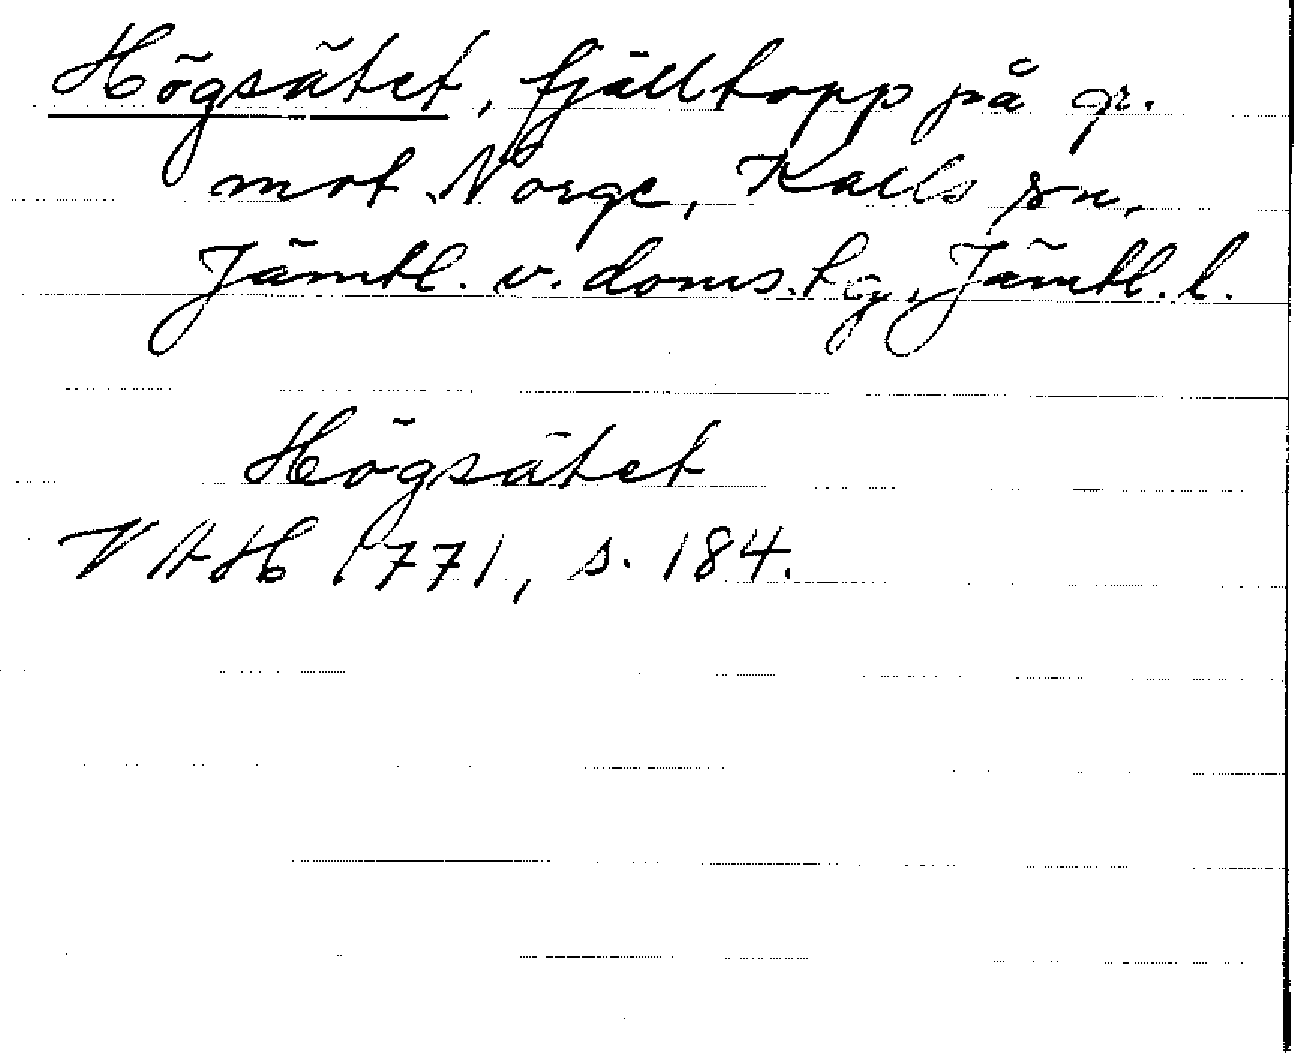 Högsätet, fjälltopp på gr.
mot Norge, Kalls sn,
Jämtl. v. doms.hg, Jämtl. l.
Högsätet
VAH 1771, s. 184.